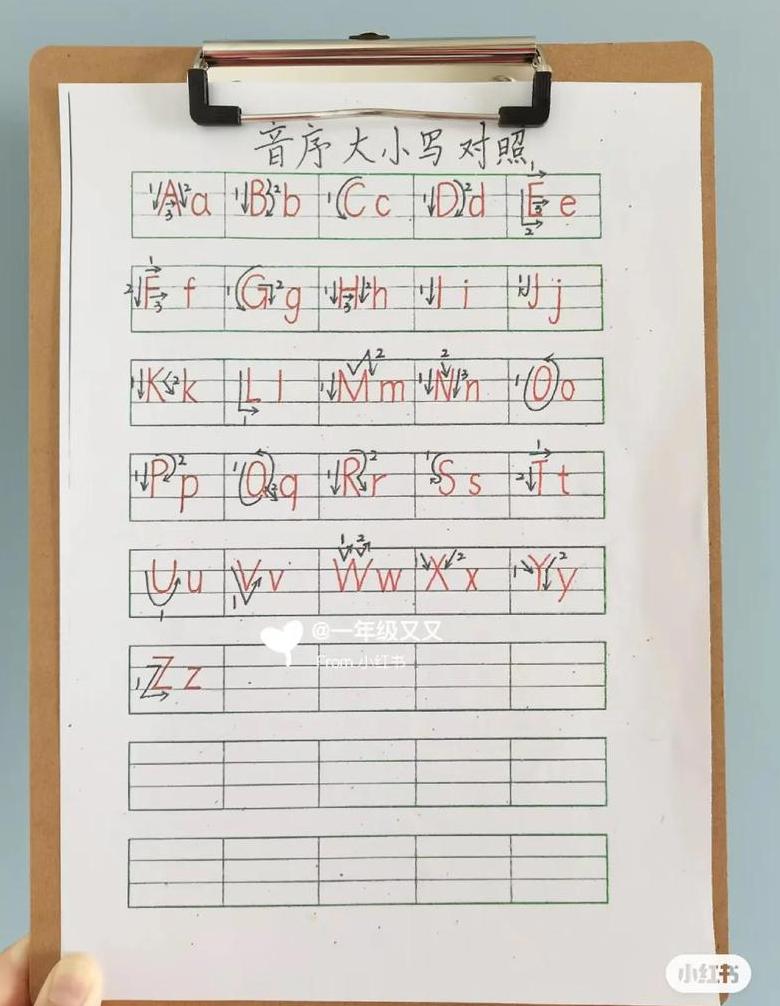 音序大小写对照
Aa Bb Cc Dd Ee
Ff Gg Hh Ii Jj
Kk Ll Mm Nn Oo
Pp Qq Rr Ss Tt
Uu Vv Ww Xx Yy
@一年级又又
From 小红书
Zz
小红书